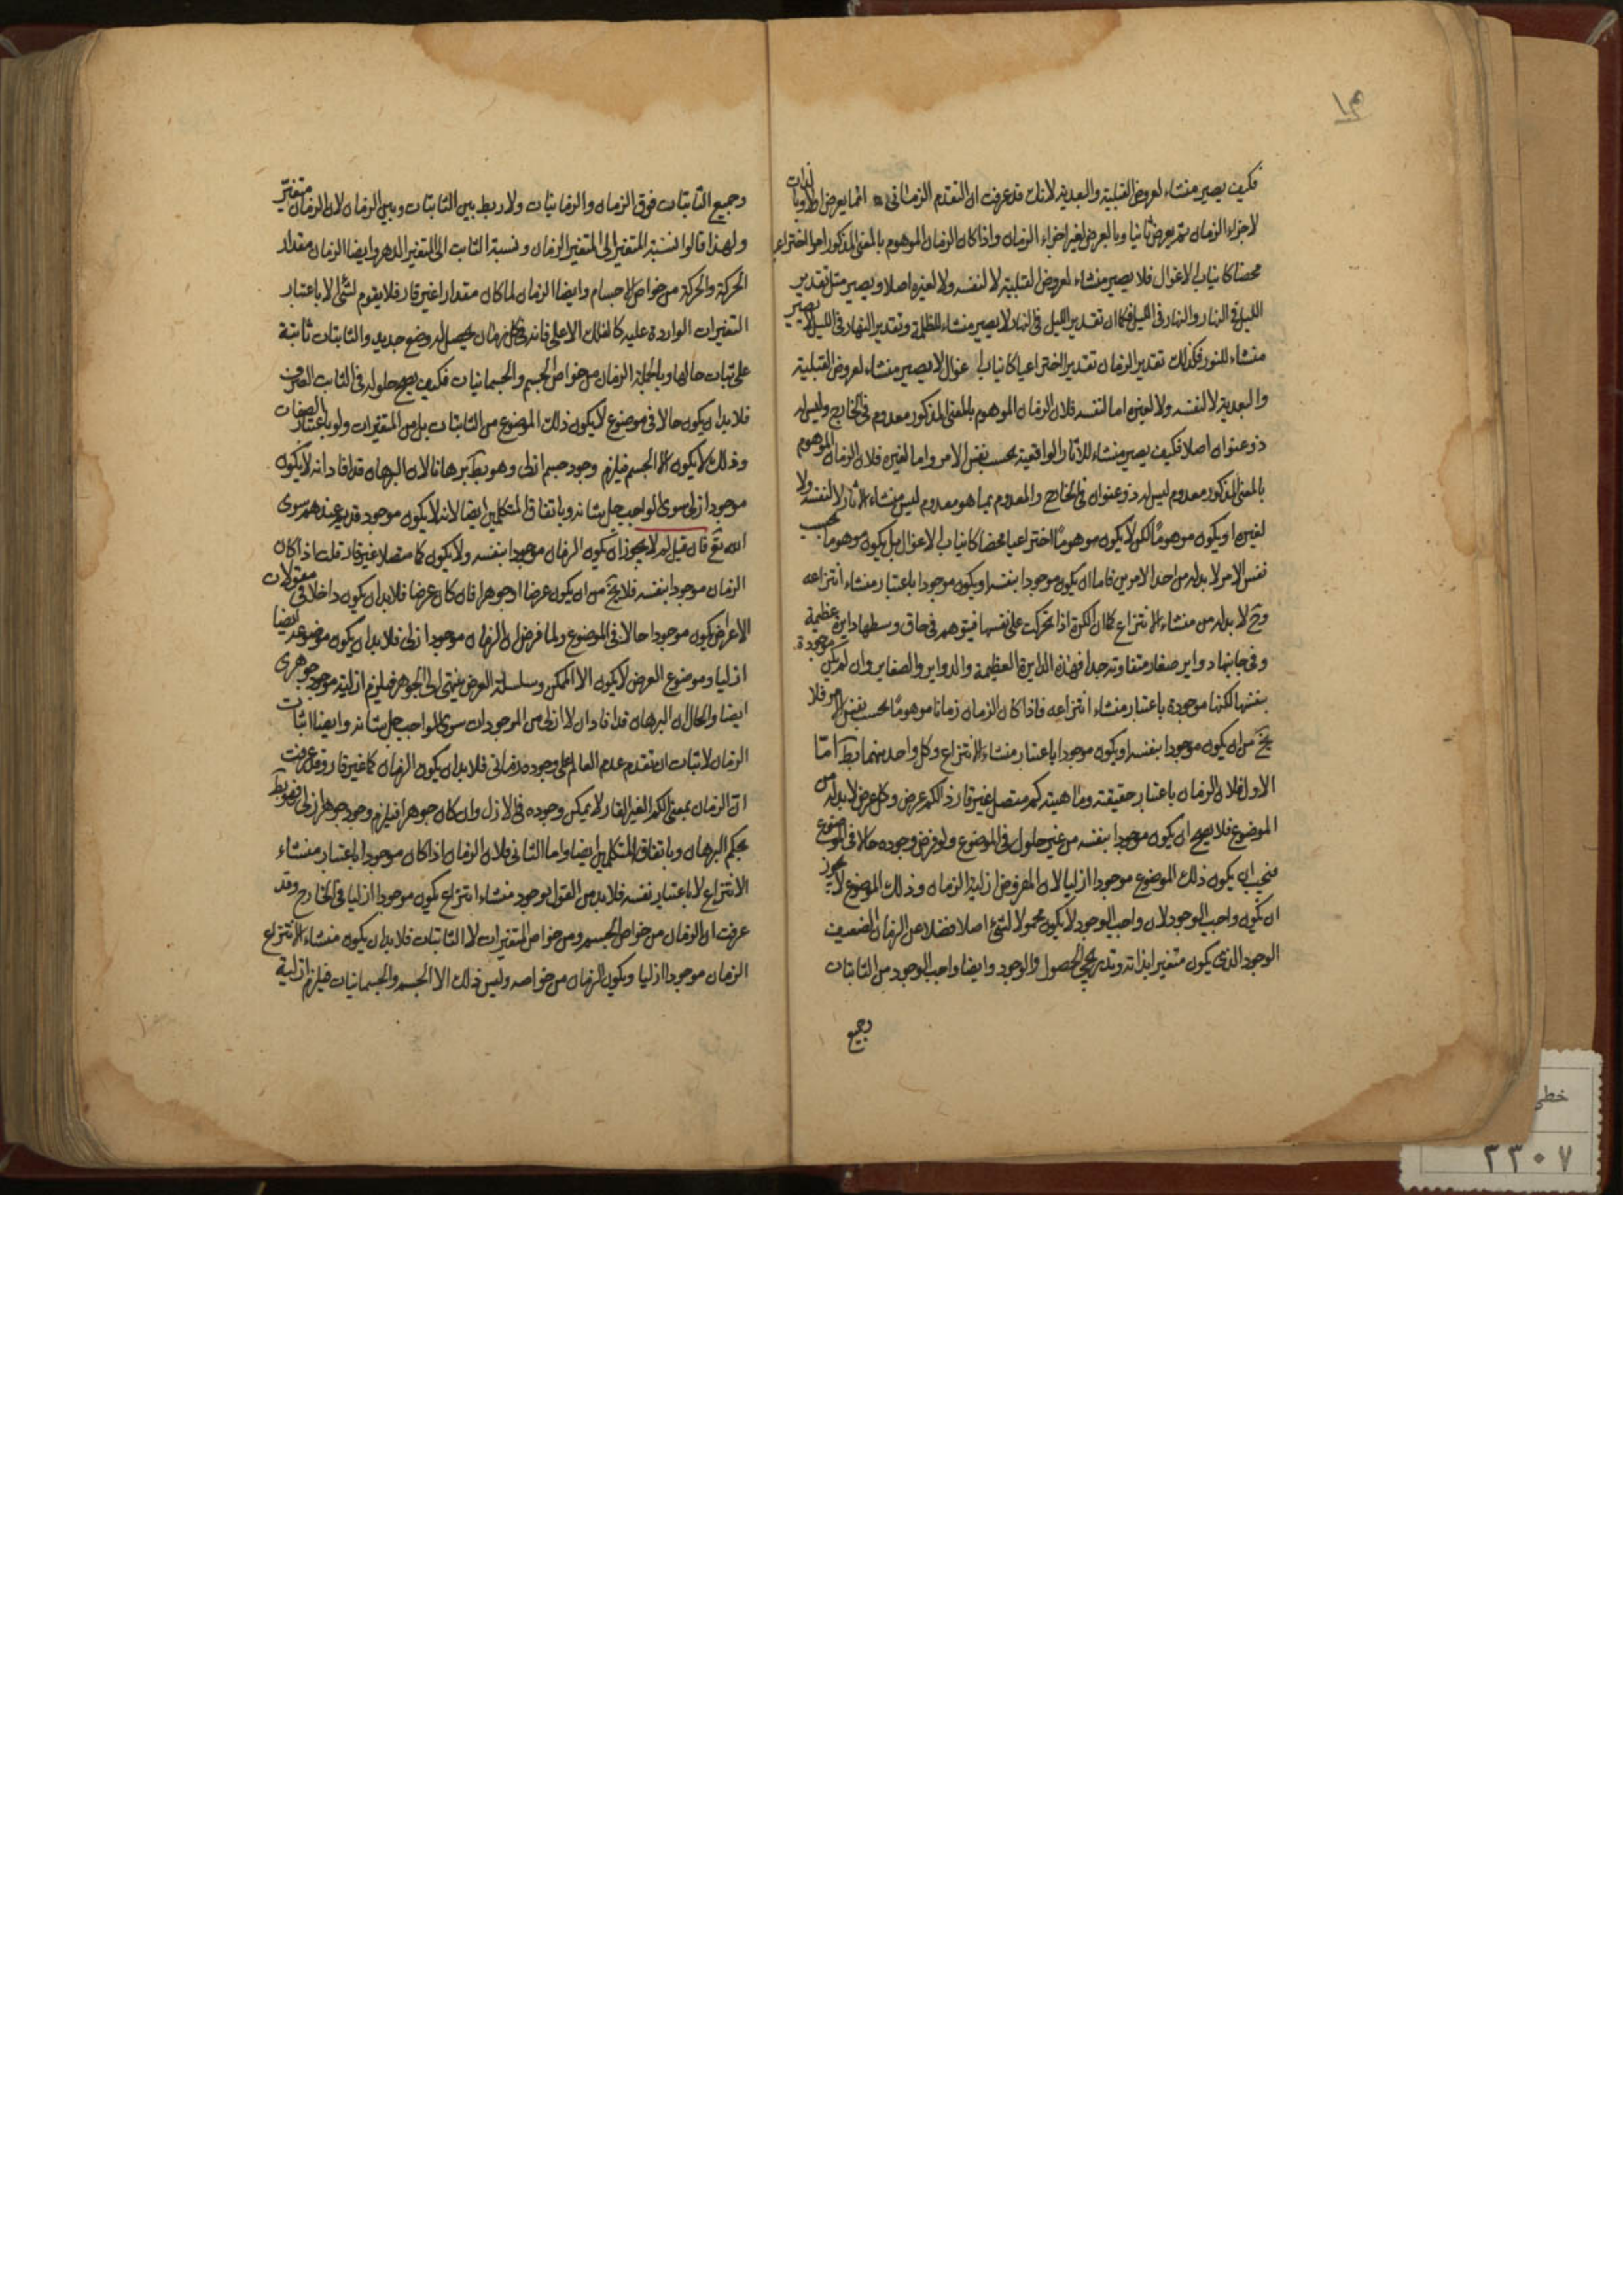 ١٣
فكيف يصير منشاء لعروض القبلية والبعدية لانك قد عرفت ان التقدم الزماني انما يعرض اولا وبالذات
لاجزاء الزمان ثم يعرض ثانيا وبالعرض لغير اجزاء الزمان واذا كان الزمان الموهوم بالمعنى المذكور امرا اختراعيا
محضا كانياب الاغوال فلا يصير منشاء لعروض القبلية لا لنفسه ولا لغيره اصلا ويصير مثل تقدير
الليل في النهار والنهار في الليل فكما ان تقدير الليل في النهار لا يصير منشاء للظلمة وتقدير النهار في الليل لا يصير
منشاء للنور فكذلك تقدير الزمان تقديرا اختراعيا كانياب اغوال لا يصير منشاء لعروض القبلية
والبعدية لا لنفسه ولا لغيره اما لنفسه فلان الزمان الموهوم بالمعنى المذكور معدوم في الخارج وليس له
ذو عنوان اصلا فكيف يصير منشاء للاثار الواقعية بحسب نفس الامر واما لغيره فلان الزمان الموهوم
بالمعنى المذكور معدوم ليس له ذو عنوان في الخارج والمعدوم بما هو معدوم ليس منشاء الاثار لا لنفسه ولا
لغيره او يكون موهوما لكن لا يكون موهوما اختراعيا محضا كانياب الاغوال بل يكون موهوما بحسب
نفس الامر لا بد له من احد الامرين فاما ان يكون موجودا بنفسه او يكون موجودا باعتبار منشاء انتزاعه
وح لا بد له من منشاء الانتزاع كما ان الكرة اذا تحركت على نفسها فيتوهم في حاق وسطها دايرة عظيمة
وفي جانبيها دواير صغار متفاوتة جدا فهذه الدايرة العظيمة والدواير والصغاير وان لم يكن موجودة
بنفسها لكنها موجودة باعتبار منشاء انتزاعه فاذا كان الزمان زمانا موهوما بحسب نفس الامر فلا
يخ من ان يكون موجودا بنفسه او يكون موجودا باعتبار منشاء الانتزاع وكل واحد منهما بط اما
الاول فلان الزمان باعتبار حقيقته وماهيته كم متصل غير قار الكم عرض وكل عرض لا بد له من
الموضوع فلا يصح ان يكون موجودا بنفسه من غير حلول في الموضوع ولو فرض وجوده حالا في الموضوع
فيجب ان يكون ذلك الموضوع موجودا ازليا لان المفروض ازلية الزمان وذلك الموضوع لا يجوز
ان يكون واجب الوجود لان واجب الوجود لا يكون محمولا لشئ اصلا فضلا عن الزمان الضعيف
الوجود الذي يكون متغيرا بذاته وتدريجي الحصول والوجود وايضا واجب الوجود من الثابتات
وجميع
وجميع الثابتات فوق الزمان والزمانيات ولا ربط بين الثابتات وبين الزمان لان الزمان متغير
ولهذا قالوا نسبة المتغير الى المتغير الزمان ونسبة الثابت الى المتغير الدهر وايضا الزمان مقدار
الحركة والحركة من خواص الاجسام وايضا الزمان لما كان مقدارا غير قار فلا يقوم لشئ الا باعتبار
التغيرات الواردة عليه كالفلك الاعلى فانه في كل زمان يحصل له وضع جديد والثابتات ثابتة
على ثبات حالها وبالجملة الزمان من خواص الجسم والجسمانيات فكيف يصح حلوله في الثابت الصرف
فلا بد ان يكون حالا في موضوع لا يكون ذلك الموضوع من الثابتات بل من المتغيرات ولو باعتبار الصفات
وذلك لا يكون الا الجسم فيلزم وجود جسم ازلي وهو بط برهانا لان البرهان قد افاد انه لا يكون
موجودا ازلي سوى الواجب جل شانه وباتفاق المتكلمين ايضا لانه لا يكون موجود قديم عندهم سوى
الله تع فان قيل لم لا يجوز ان يكون الزمان موجودا بنفسه ولا يكون كما متصلا غير قار قلت اذا كان
الزمان موجودا بنفسه فلا يخ من ان يكون عرضا او جوهرا فان كان عرضا فلا بد ان يكون داخلا في مقولات
الاعراض يكون موجودا حالا في الموضوع ولما فرض ان الزمان موجود ازلي فلا بد ان يكون موضوعه ايضا
ازليا وموضوع العرض لا يكون الا الممكن وسلسلة العرض ينتهي الى الجوهر فيلزم ازلية موجود جوهري
ايضا والحال ان البرهان قد افاد ان لا ازلي من الموجودات سوى الواجب جل شانه وايضا اثبات
الزمان لاثبات ان تقدم عدم العالم على وجوده زماني فلا بد ان يكون الزمان كما غير قار وقد عرفت
ان الزمان بمعنى الكم الغير القار لا يمكن وجوده في الازل وان كان جوهرا فيلزم وجود جوهر ازلي فهو بط
بحكم البرهان وباتفاق المتكلمين ايضا واما الثاني فلان الزمان اذا كان موجودا باعتبار منشاء
الانتزاع لا باعتبار نفسه فلا بد من القول بوجود منشاء انتزاع يكون موجودا ازليا في الخارج وقد
عرفت ان الزمان من خواص الجسم ومن خواص المتغيرات لا الثابتات فلا بد ان يكون منشاء الانتزاع
الزمان موجودا ازليا ويكون الزمان من خواصه وليس ذلك الا الجسم والجسمانيات فيلزم ازلية
خطی
٢٣٠٧